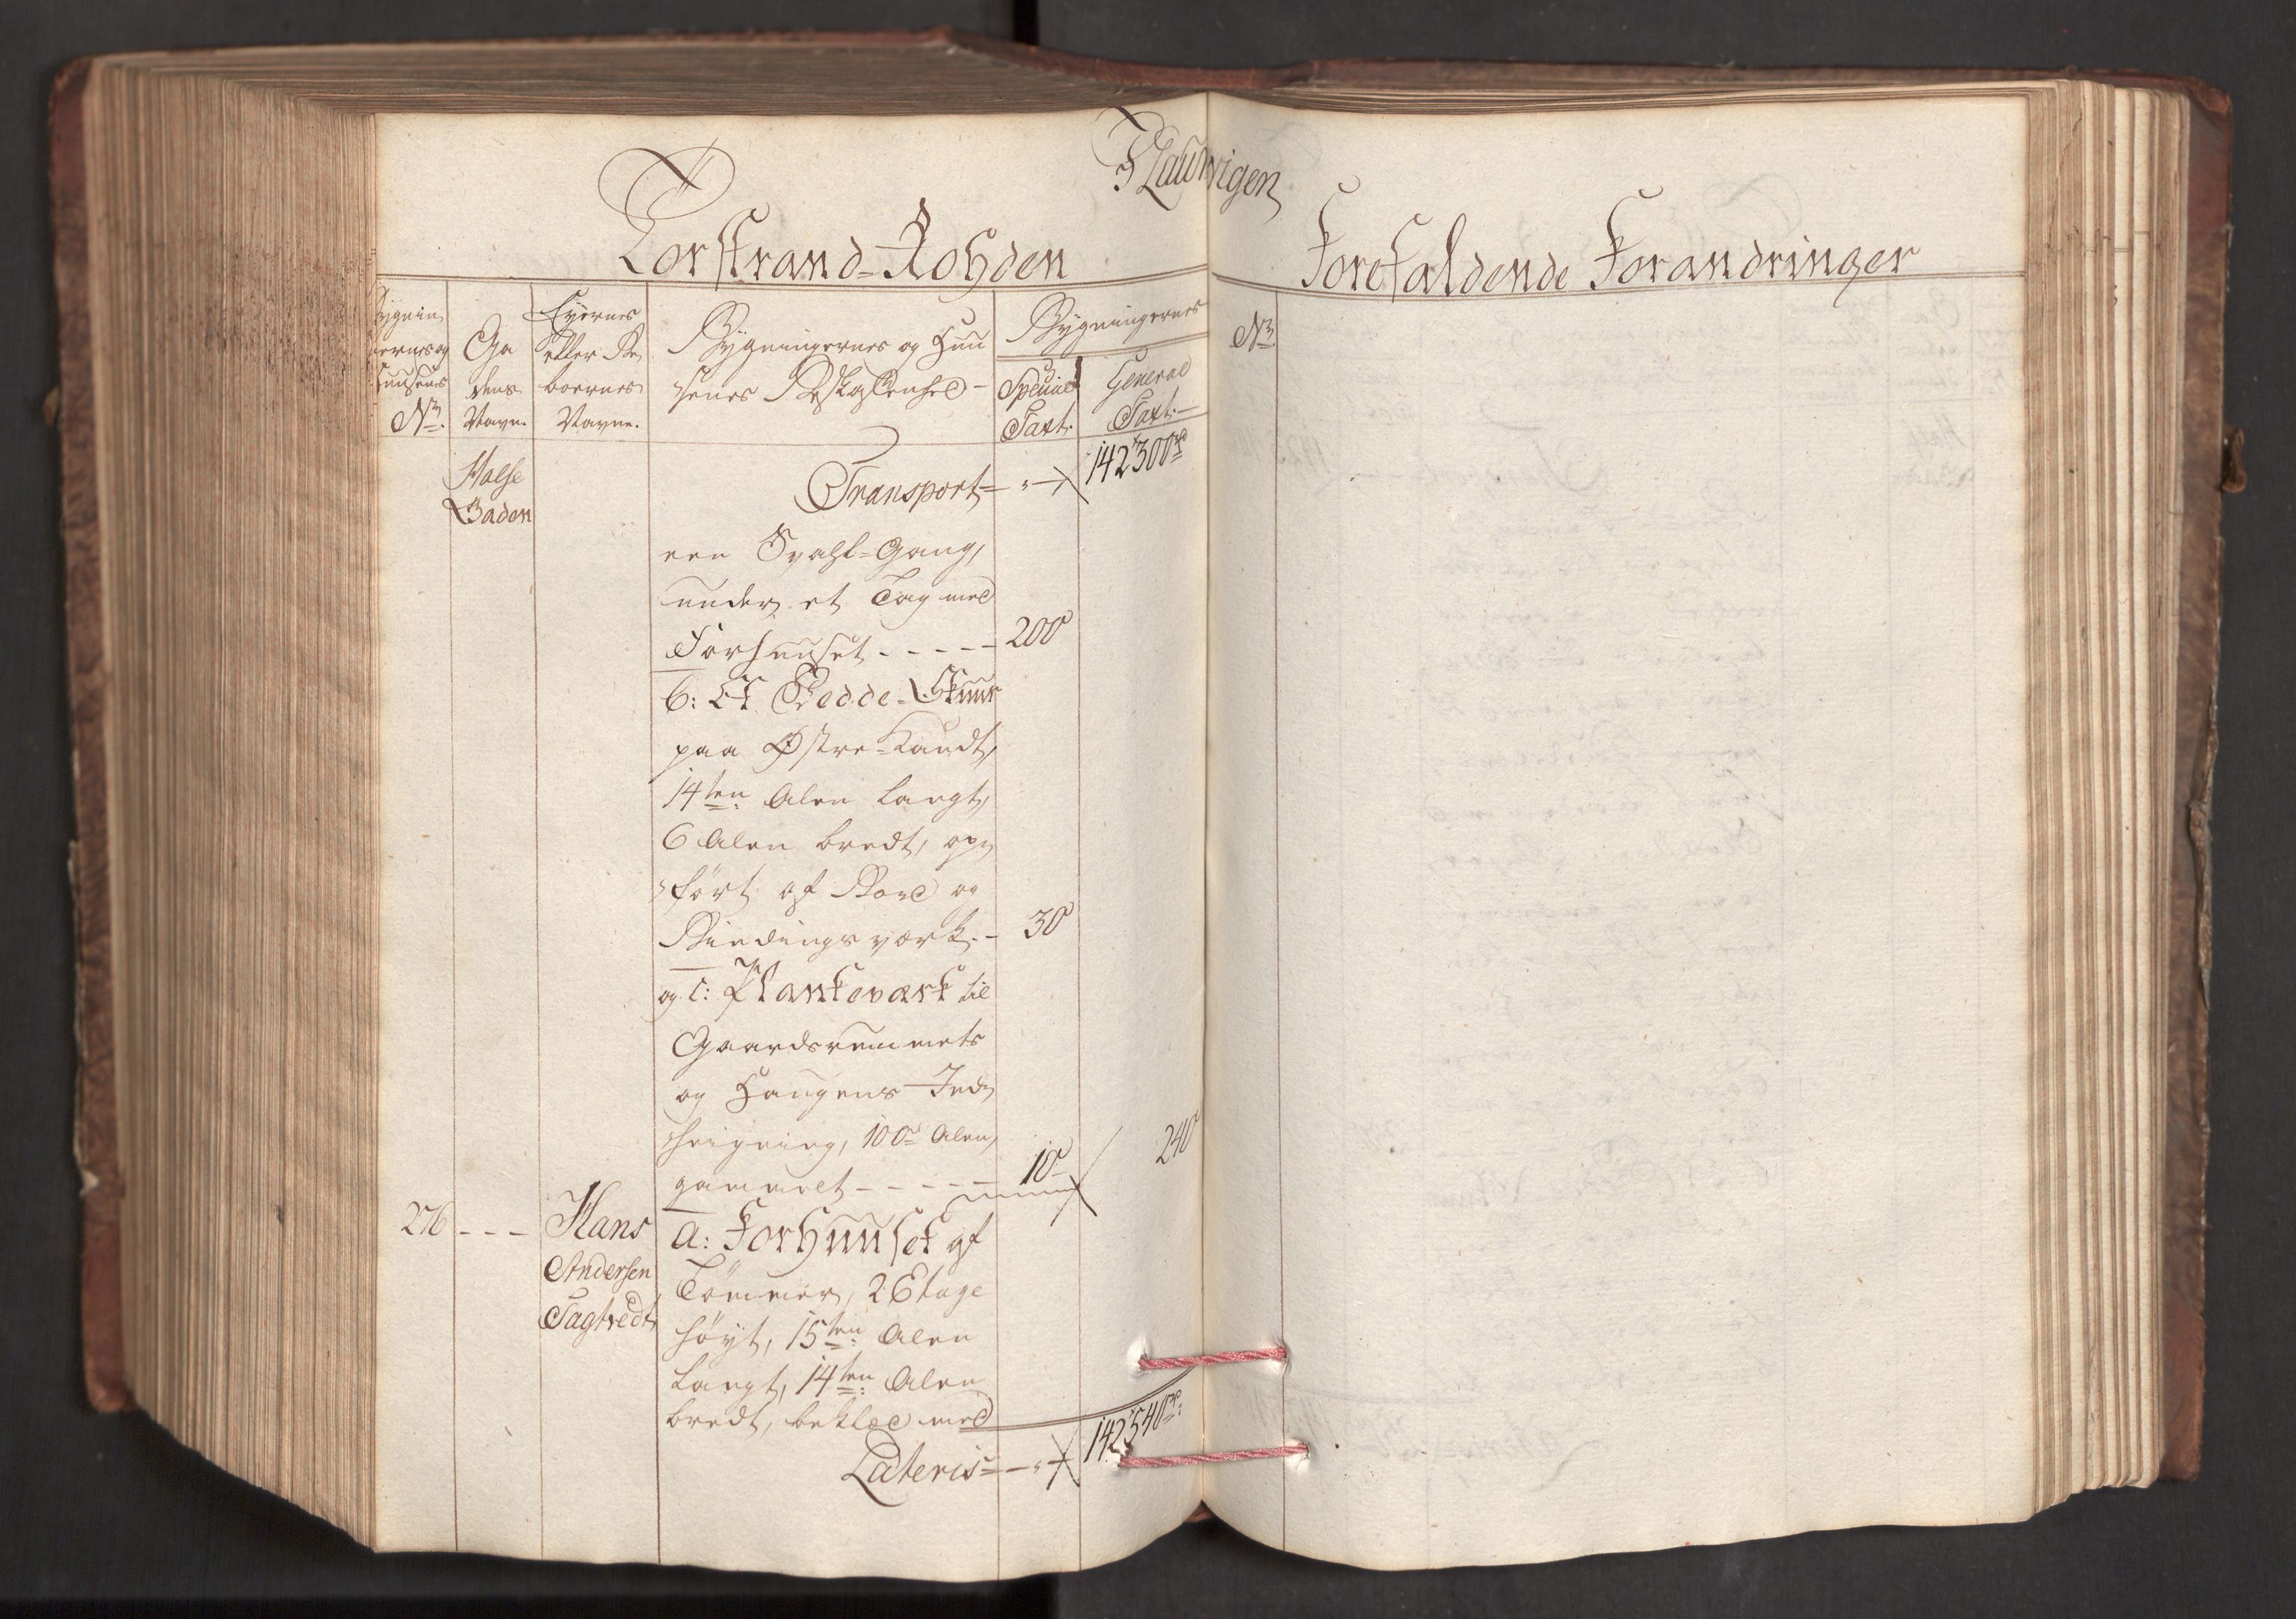 I Laurvigen
Torstrand-Rohden
Forefaldende Forandringer
Bygnin
gernes og
Huusenes
No.
Ga
dens
Navn.
Eyernes
eller Be
boernes
Navne.
Bygningernes og Huu
senes Beskaffenhed
Bygningernes
Special
Taxt.
General
Taxt.
No.
Halse
Gaden
Transport 142300 rd
een Svahl-Gang,
under et Tag med
Forhuuset - - - - - 200
b: Et Bedde-Skuur
paa Østre-Kandt,
14ten Alen langt,
6 Alen bredt, op
ført af Bord og
Bindingsværk. - 30
og c: Plankeværk til
Gaardsrummets
og Haugens Ind
heigning, 100de Alen,
gammelt - - - - - 10 240
276 - - - Hans
Andersen
Fagtvedt
a: Forhuuset af
Tömmer, 2 Etage
höyt, 15ten Alen
Langt, 14ten Alen
bredt, beklæd med
Lateris 142540 rd